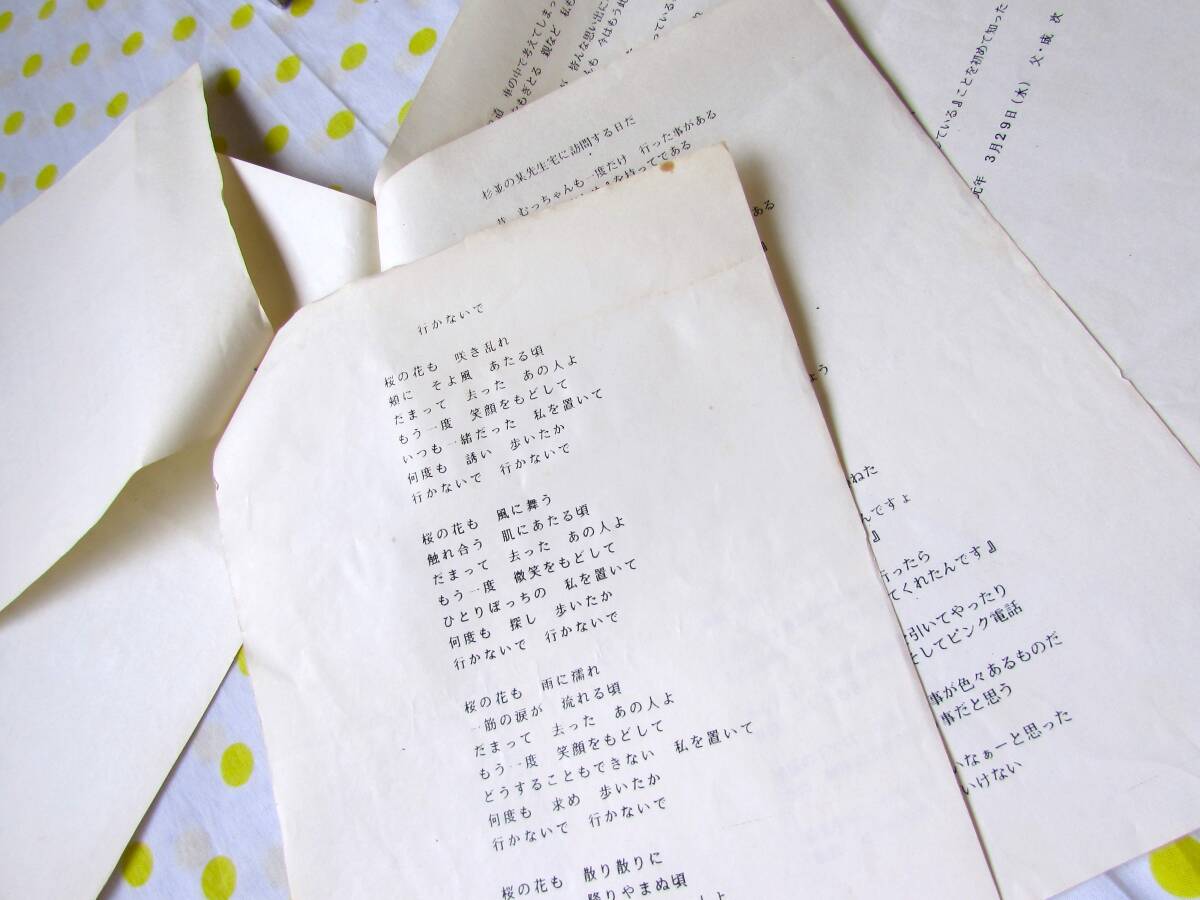 行かないで
桜の花も 咲き乱れ
頬に そよ風 あたる頃
だまって 去った あの人よ
もう一度 笑顔をもどして
いつも一緒だった 私を置いて
何度も 誘い 歩いたか
行かないで 行かないで
桜の花も 風に舞う
触れ合う 肌にあたる頃
だまって 去った あの人よ
もう一度 微笑をもどして
ひとりぼっちの 私を置いて
何度も 探し 歩いたか
行かないで 行かないで
桜の花も 雨に濡れ
一筋の涙が 流れる頃
だまって 去った あの人よ
もう一度 笑顔をもどして
どうすることもできない 私を置いて
何度も 求め 歩いたか
行かないで 行かないで
桜の花も 散り散りに
降りやまぬ頃
人よ
杉並の某先生宅に訪問する日だ
むっちゃんも一度だけ 行った事がある
を持ってである
ある
ょう
ねた
んですよ
』
行ったら
てくれたんです』
引いてやったり
そしてピンク電話
事が色々あるものだ
事だと思う
いなぁーと思った
いけない
車の中で考えてしまっ
もぎとる 親など 私も
皆んな思い出に
今はもう
っている
している』ことを初めて知った
元年 3月29日(水) 父・成次